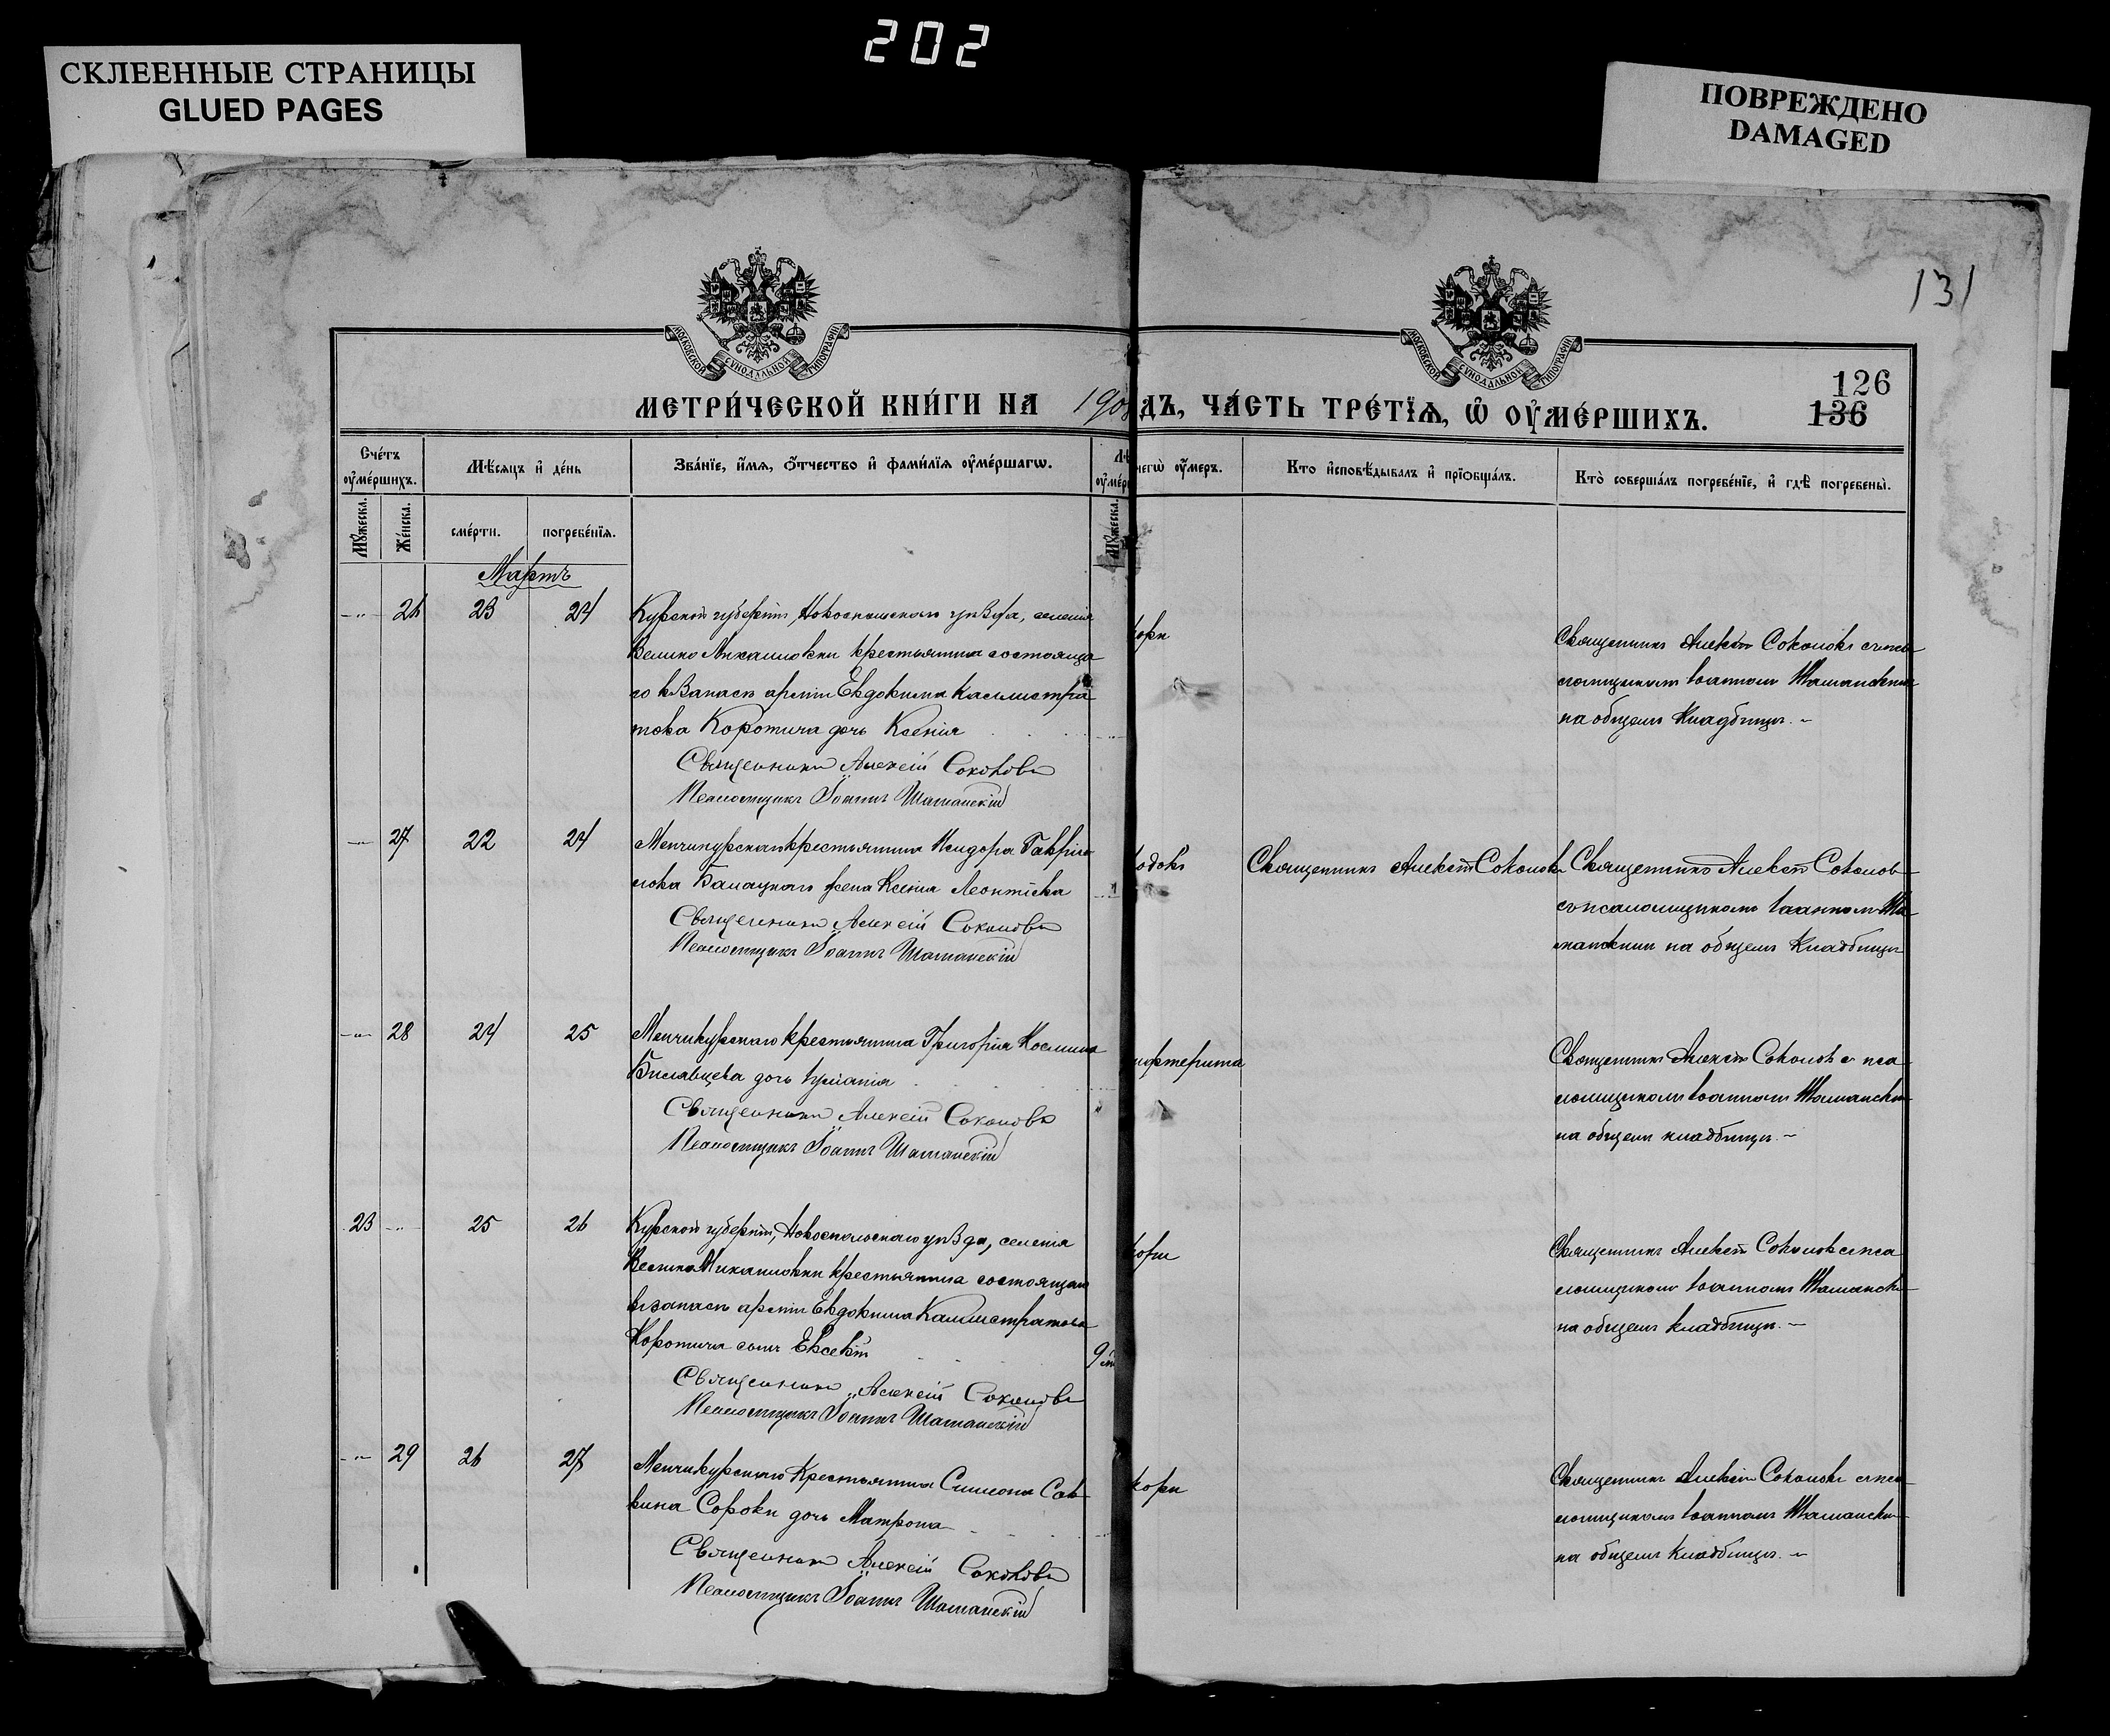 202
СКЛЕЕННЫЕ СТРАНИЦЫ
GLUED PAGES
ПОВРЕЖДЕНО
DAMAGED
131
МОСКОВСКОЙ СѴНОДАЛЬНОЙ ТИПОГРАФІИ
МОСКОВСКОЙ СѴНОДАЛЬНОЙ ТИПОГРАФІИ
126
136
МЕТРИ́ЧЕСКОЙ КНИ́ГИ НА 190
ДЪ, ЧА́СТЬ ТРЕ́ТІѦ, Ѡ҆ ОУ҆МЕ́РШИХЪ.
Сче́тъ
оу҆ме́ршихъ.
Мѣ́сяцъ и҆ де́нь
Зва́нїе, и҆́мя, ѻ҆́тчество и҆ фами́лїя оу҆ме́ршагѡ.
чегѡ̀ оу҆́меръ.
Кто̀ и҆сповѣ́дывалъ и҆ прїѻбща́лъ.
Кто̀ соверша́лъ погребе́нїе, и҆ гдѣ̀ погребены̀.
Мꙋ́жеска.
Же́нска.
сме́рти.
погребе́нїя.
Мꙋ́жеска.
Мартъ
-"- 26 23 24
Курской губерніи, Новооскольскаго уѣзда, селенія
Велико Михайловки крестьянина состояща
го в запасѣ арміи Евдокима Каллистра
това Коротича дочь Ксенія
Священникъ Алексій Соколовъ
Псаломщикъ Іоаннъ Шаманскій
кори
Священникъ Алексій Соколовъ съ пса
ломщикомъ Іоанномъ Шаманскимъ
на общемъ кладбищѣ. –
-"- 27 22 24
Менчикурскаго крестьянина Исидора Гаврии
лова Балацкаго жена Ксенія Леонтіева
Священникъ Алексій Соколовъ
Псаломщикъ Іоаннъ Шаманскій
Священникъ Алексій Соколовъ
Священникъ Алексій Соколовъ
съ псаломщикомъ Іоанномъ Ша
манскимъ на общемъ кладбищѣ
-"- 28 24 25
Менчикурскаго крестьянина Григорія Космина
дочь Іуліанія
Священникъ Алексій Соколовъ
Псаломщикъ Іоаннъ Шаманскій
Священникъ Алексій Соколовъ съ пса
ломщикомъ Іоанномъ Шаманским
на общемъ кладбищѣ. –
23 -"- 25 26
Курской губерніи, Новооскольскаго уѣзда, селенія
Велико Михайловки крестьянина состоящаго
въ запасѣ арміи Евдокима Каллистратова
Коротича сынъ Евсевій
Священникъ Алексій Соколовъ
Псаломщикъ Іоаннъ Шаманскій
9
кори
Священникъ Алексій Соколовъ съ пса
ломщикомъ Іоанномъ Шаманским
на общемъ кладбищѣ. –
-"- 29 26 27
Менчикурскаго крестьянина Симеона Сав
вина Сороки дочь Матрона
Священникъ Алексій Соколовъ
Псаломщикъ Іоаннъ Шаманскій
кори
Священникъ Алексій Соколовъ съ пса
ломщикомъ Іоанномъ Шаманским
на общемъ кладбищѣ. –